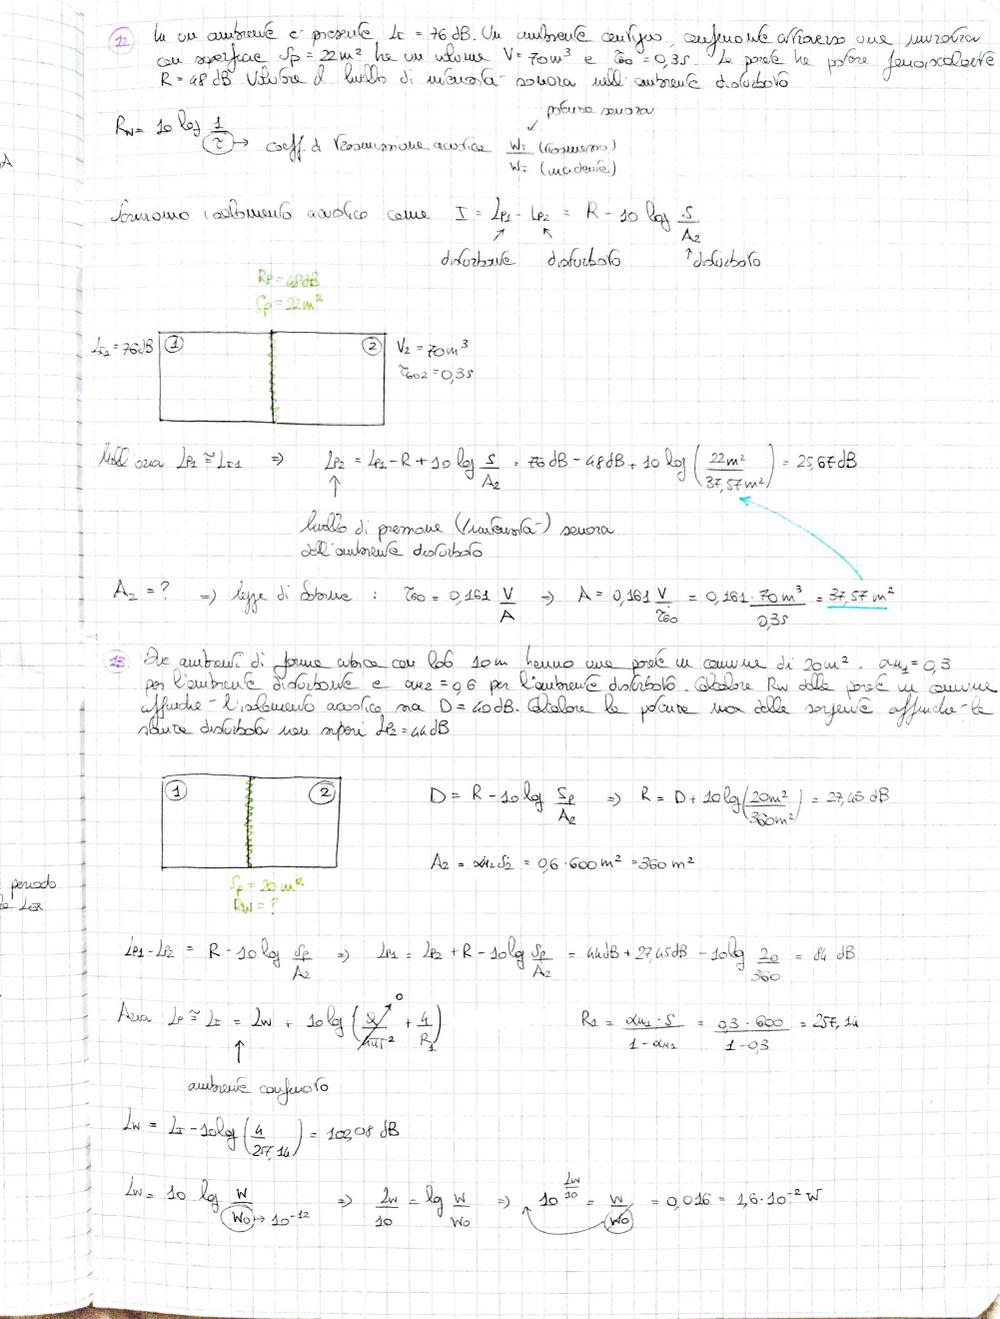 12 In un ambiente è presente LI = 76 dB. Un ambiente contiguo, confinante attraverso una muratura
con superficie Sp = 22 m² ha un volume V = 70 m³ e τ60 = 0,3 s. La parete ha potere fonoisolante
R = 48 dB Valutare il livello di intensità sonora nell'ambiente disturbato
potenza sonora
RW = 10 log 1/τ → coeff. di trasmissione acustica Wt (trasmessa) / Wi (incidente)
A
isolamento acustico come I = LP1 - LP2 = R - 10 log S/A2
disturbante disturbato disturbato
RP = 48 dB
Sp = 22 m²
LI1 = 76 dB 1 2 V2 = 70 m³
τ60 2 = 0,3 s
Nell'aria LP1 ≅ LI1 ⇒ LP2 = LP1 - R + 10 log S/A2 = 76 dB - 48 dB + 10 log (22 m²/37,57 m²) = 25,67 dB
livello di pressione (/intensità) sonora
dell'ambiente disturbato
A2 = ? ⇒ legge di Sabine : τ60 = 0,161 V/A ⇒ A = 0,161 V/τ60 = 0,161 · 70 m³/0,3 s = 37,57 m²
13 Due ambienti di forma cubica con lato 10 m hanno una parete in comune di 20 m². αm1 = 0,3
per l'ambiente disturbante e αm2 = 0,6 per l'ambiente disturbato. Calcolare RW della parete in comune
affinché l'isolamento acustico sia D = 40 dB. Calcolare la potenza max della sorgente affinché la
stanza disturbata non superi LP2 = 44 dB
1 2 D = R - 10 log Sp/A2 ⇒ R = D + 10 log (20 m²/360 m²) = 27,45 dB
A2 = αm2 S2 = 0,6 · 600 m² = 360 m²
periodo
LEX
Sp = 20 m²
RW = ?
LP1 - LP2 = R - 10 log Sp/A2 ⇒ LP1 = LP2 + R - 10 log Sp/A2 = 44 dB + 27,45 dB - 10 log 20/360 = 84 dB
Aria LP ≅ LI = LW + 10 log (Q/4πr² + 4/R1) 0 R1 = αm1 · S/1 - αm1 = 0,3 · 600/1 - 0,3 = 257,14
ambiente confinato
LW = LI - 10 log (4/257,14) = 102,08 dB
LW = 10 log W/W0 → 10⁻¹² ⇒ LW/10 = log W/W0 ⇒ 10^(LW/10) = W/W0 = 0,016 = 1,6 · 10⁻² W